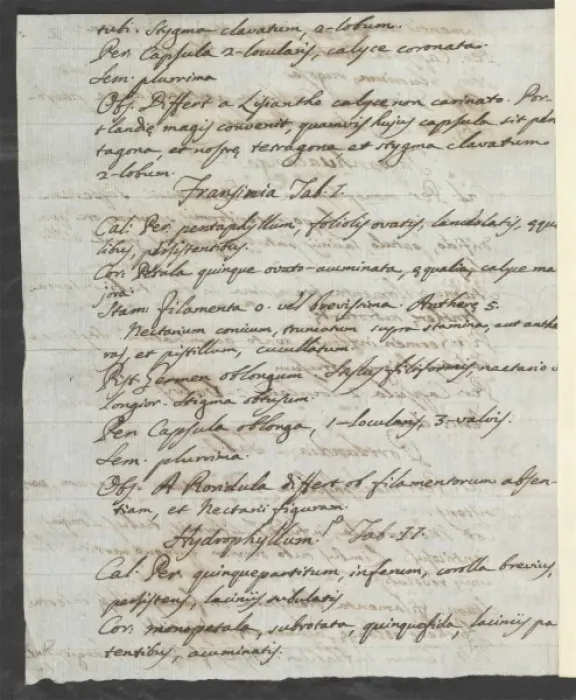 tubi. Stygma clavatum, 2-lobum.
Per. Capsula 2-locularis, calyce coronata.
Sem. plurima
Obs. Differt a Lisiantho calyce non carinato. Por-
tlandię magis convenit, quamvis hujus capsula sit pen
tagona, et nostrę tetragona et stygma clavatum
2-lobum.
Fransinia Tab. I.
Cal. Per. pentaphyllum, foliolis ovatis, lanceolatis, ęqua
libus, persistentibus.
Cor. Petala quinque ovato-acuminata, ęqualia, calyce ma
jora.
Stam. filamenta 0. vel brevissima. Antherę 5.
Nectarium conicum, truncatum supra stamina, aut anthe
ras, et pistillum, cucullatum.
Pist. Germen oblongum. Stylus filiformis nectario
longior. Stigma obtusum.
Per. Capsula oblonga, 1-locularis, 3-valvis.
Sem. plurima.
Obs. A differt ob filamentorum absen-
tiam, et Nectarii figuram.
Hydrophyllum. Tab. II.
Cal. Per. quinquepartitum, inferum, corolla brevius,
persistens, laciniis subulatis
Cor. monopetala, subrotata, quinquefida, laciniis pa
tentibus, acuminatis.